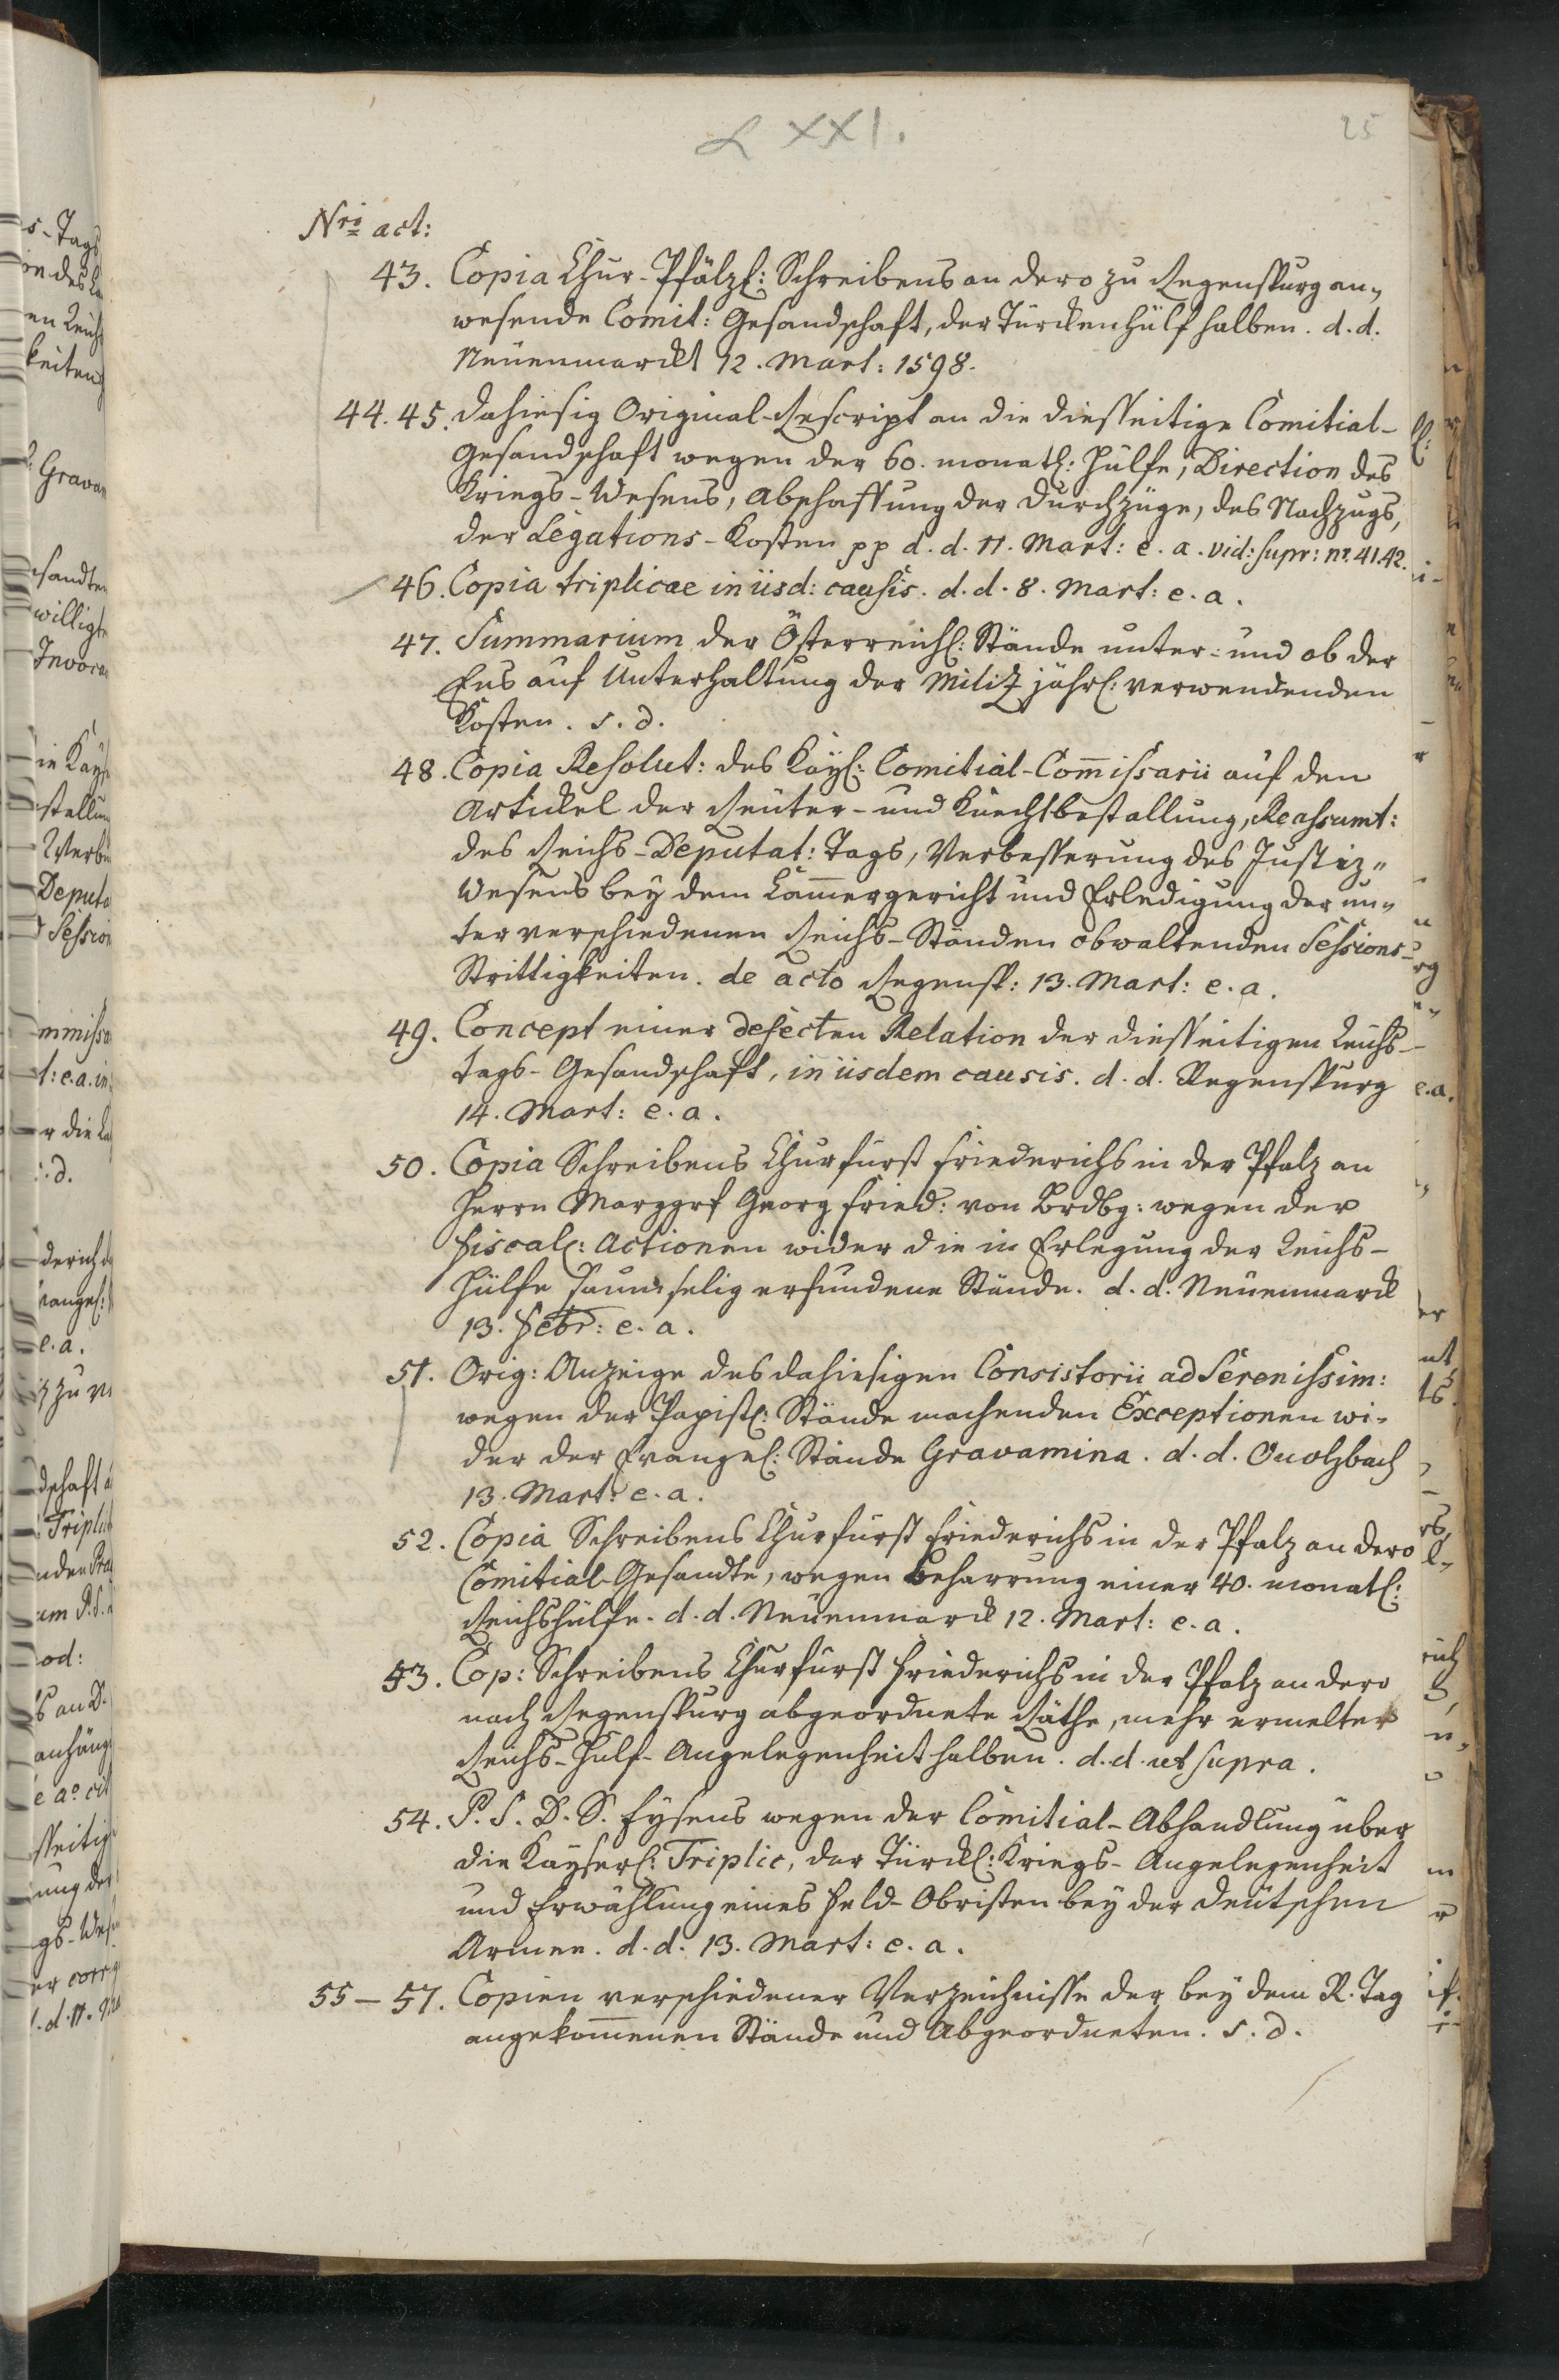 LXXI.
25
Nri act:
43. Copia Chur-Pfälzl: Schreibens an dero zu Regenspurg an„
wesende Comit: Gesandschaft, der Türckenhülf halben. d. d.
Neuenmarckt 12. Mart: 1598.
44. 45. dahiesig Original-Rescript an die diesseitige Comitial-
Gesandschaft wegen der 60. monatl: Hülfe, Direction des
Kriegs-Wesens, Abschaffung der Durchzüge, des Nachzugs,
der Legations-Kosten pp d. d. 11. Mart: e. a. vid: supr: nr. 41.42.
46. Copia triplicae in iisd: causis. d. d. 8. Mart: e. a.
47. Summarium der Österreichl: Stände unter- und ob der
Ens auf Unterhaltung der Militz jährl: verwendenden
Kosten. s. d.
48. Copia Resolut: des Kayl: Comitial-Com̄issarii auf den
Artickel der Reuter- und Knechtbestallung, Reassumt:
des Reichs-Deputat: Tags, Verbesserung des Justiz„
Wesens bey dem Cam̄ergericht und Erledigung der un„
ter verschiedenen Reichs-Ständen obwaltenden Sessions-
Strittigkeiten. de acto Regensp: 13. Mart: e. a.
49. Concept einer defecten Relation der diesseitigen Reichs-
tags-Gesandschaft, in iisdem causis. d. d. Regenspurg
14. Mart: e. a.
50. Copia Schreibens Churfürst Friederichs in der Pfalz an
Herrn Marggrf Georg Fried: von Brdbg: wegen der
fiscal: Actionen wider die in Erlegung der Reichs-
Hülfe saumselig erfundene Stände. d. d. Neuenmarck
13. Febr: e. a.
51. Orig: Anzeige des dahiesigen Consistorii ad Serenissim:
wegen der Papistl: Stände machenden Exceptionen wi-
der der Evangel: Stände Gravamina. d. d. Onolzbach
13. Mart: e. a.
52. Copia Schreibens Churfürst Friederichs in der Pfalz an dero
Comitial-Gesandte, wegen Beharrung einer 40. monatl:
Reichshülfe. d. d. Neuenmarck 12. Mart: e. a.
53. Cop: Schreibens Churfürst Friederichs in der Pfalz an dero
nach Regenspurg abgeordnete Räthe, mehr ermelter
Reichs-Hülf-Angelegenheit halben. d. d. ut supra.
54. P. S. D. S. Eysens wegen der Comitial-Abhandlung über
die Kayserl: Triplic, der Türckl: Kriegs-Angelegenheit
und Erwählung eines Feld-Obristen bey der deutschen
Armee. d. d. 13. Mart: e. a.
55–57. Copien verschiedener Verzeichnisse der bey dem R. Tag
angekom̄enen Stände und Abgeordneten. s. d.